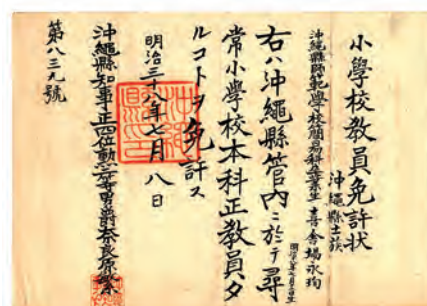 小學校教員免許狀
沖繩縣士族
沖繩縣師範學校簡易科卒業生 喜舍場永珣
右ハ沖繩縣管内ニ於テ尋
常小學校本科正教員タ
ルコトヲ免許ス
明治三十八年七月八日
沖繩縣知事正四位勳二等男爵奈良原繁
第八三九號